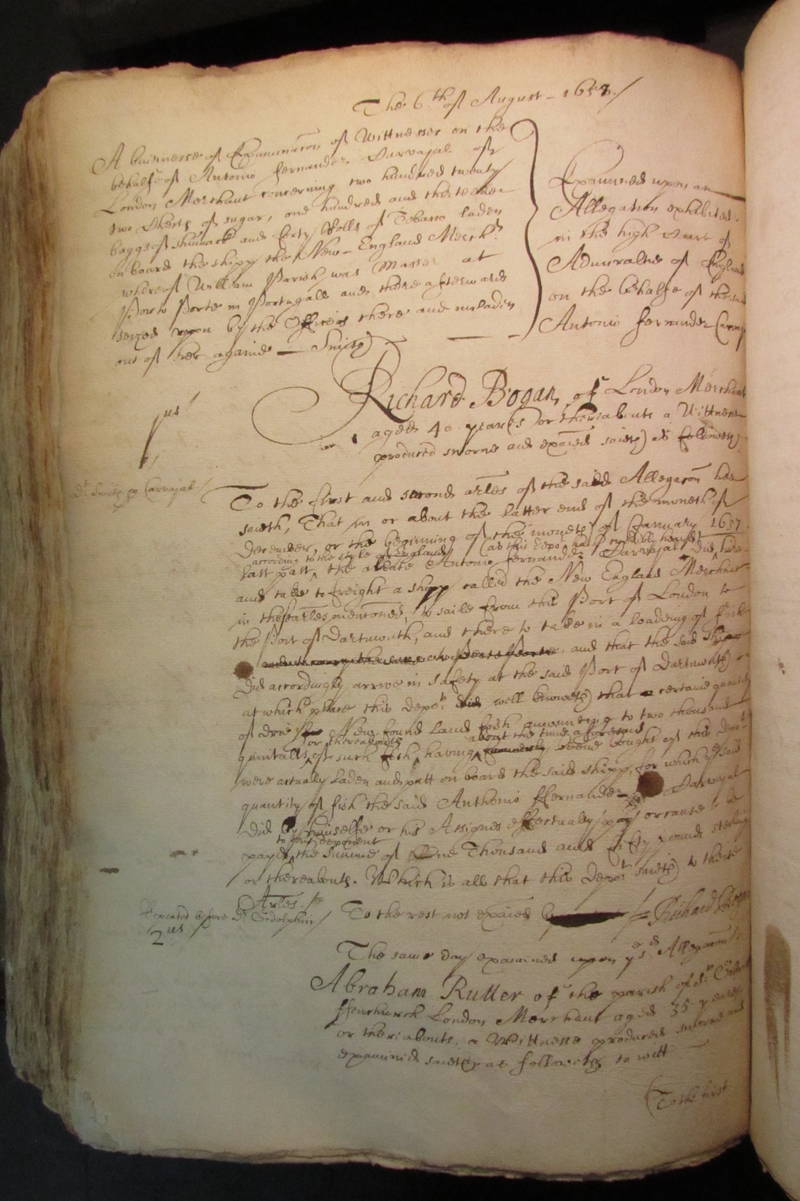 The 6th of August - 1658./
A buisnesse of Examinacon of Wittnesses on the
behalfe of Antonio Fernandez Carvajal of
London Merchant concerning two hundred twenty
two Chests of sugar, one hundred and thirteene
baggs of shumack and forty Rolls of Tobacco laden
on board the shipp the New-England Mercht
whereof William Parish was Master at
Porto Porte in Portugall and there afterwards
seized upon by the Officers there and unladen
out of her againe - Smith)
Examined upon an
Allegation exhibited
in the high Court of
Admiraltie of England
on the behalfe of the said
Antonio Fernandez Carvaj
Richard Bogan, of London Merchant
aged 40 yeares or thereabouts a Wittnesse
produced sworne and exaied saieth) as followeth)
jus
Dr. Smith pro Carvajal /
To the first and second arles of the said Allegacon hee
saieth, That in or about the latter end of the moneth of
December, or the beginning of the moneth of January 1657
according to the style of England (as this depot hath credibly heard)
last past, the arlate Antonio Fernandez Carvajal did, lade
and take to freight a shipp called the New England Merchant
in the sd arles mentioned, to saile from this Port of London to
the Port of Dartmouth, and there to take in a loading of fish
and that the said Shipp
did accordingly arrive in safety at the said Port of Dartmouth
at which place this depot did well knoweth) that a certaine quantity
of drie New found land fish amounting to two thousand
or thereabouts
about the time aforesaid
quintalls of such fish, having beene bought of this depot
were actually laden and putt on board the said shipp, for which said
quantity of fish the said Anthonio Ffernandez Carvajal
did by himselfe or his Assignes effectually pay or cause to be
to this deponent
payd the summe of One Thousand and fifty pound sterling
or thereabouts. Which is all that this depot saieth) to these
Arles./
To the rest not exaied
Richard Bogan
Repeated before Dr Godolphin /
2us
The same day examined upon ye sd Allegacon
Abraham Rutter of the parish of
ffenchurch London Merchant aged 35 yeares
or thereabouts, a Wittnesse produced sworne and
examined saieth as followeth to witt
(To the first